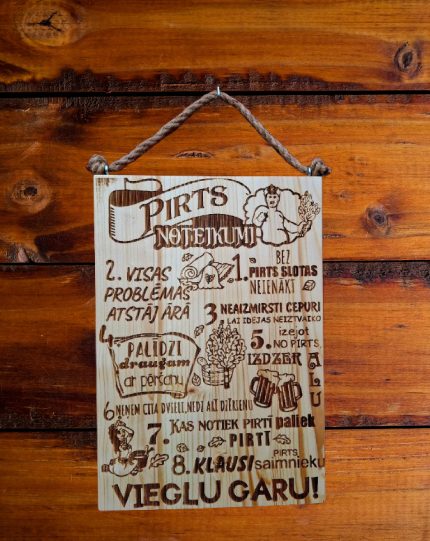 PIRTS
NOTEIKUMI
1. BEZ
PIRTS SLOTAS
NEIENĀKT
2. VISAS
PROBLĒMAS
ATSTĀJ ĀRĀ
3 NEAIZMIRSTI CEPURI
LAI IDEJAS NEIZTVAIKO
4 PALĪDZI
draugam
ar pēršanu
5. izejot
NO PIRTS
IZDZER ALU
6 NEŅEM CITA DVIELI, NEDZ ARĪ DZĒRIENU
7. KAS NOTIEK PIRTĪ paliek
PIRTĪ
8. KLAUSI PIRTS saimnieku
VIEGLU GARU!